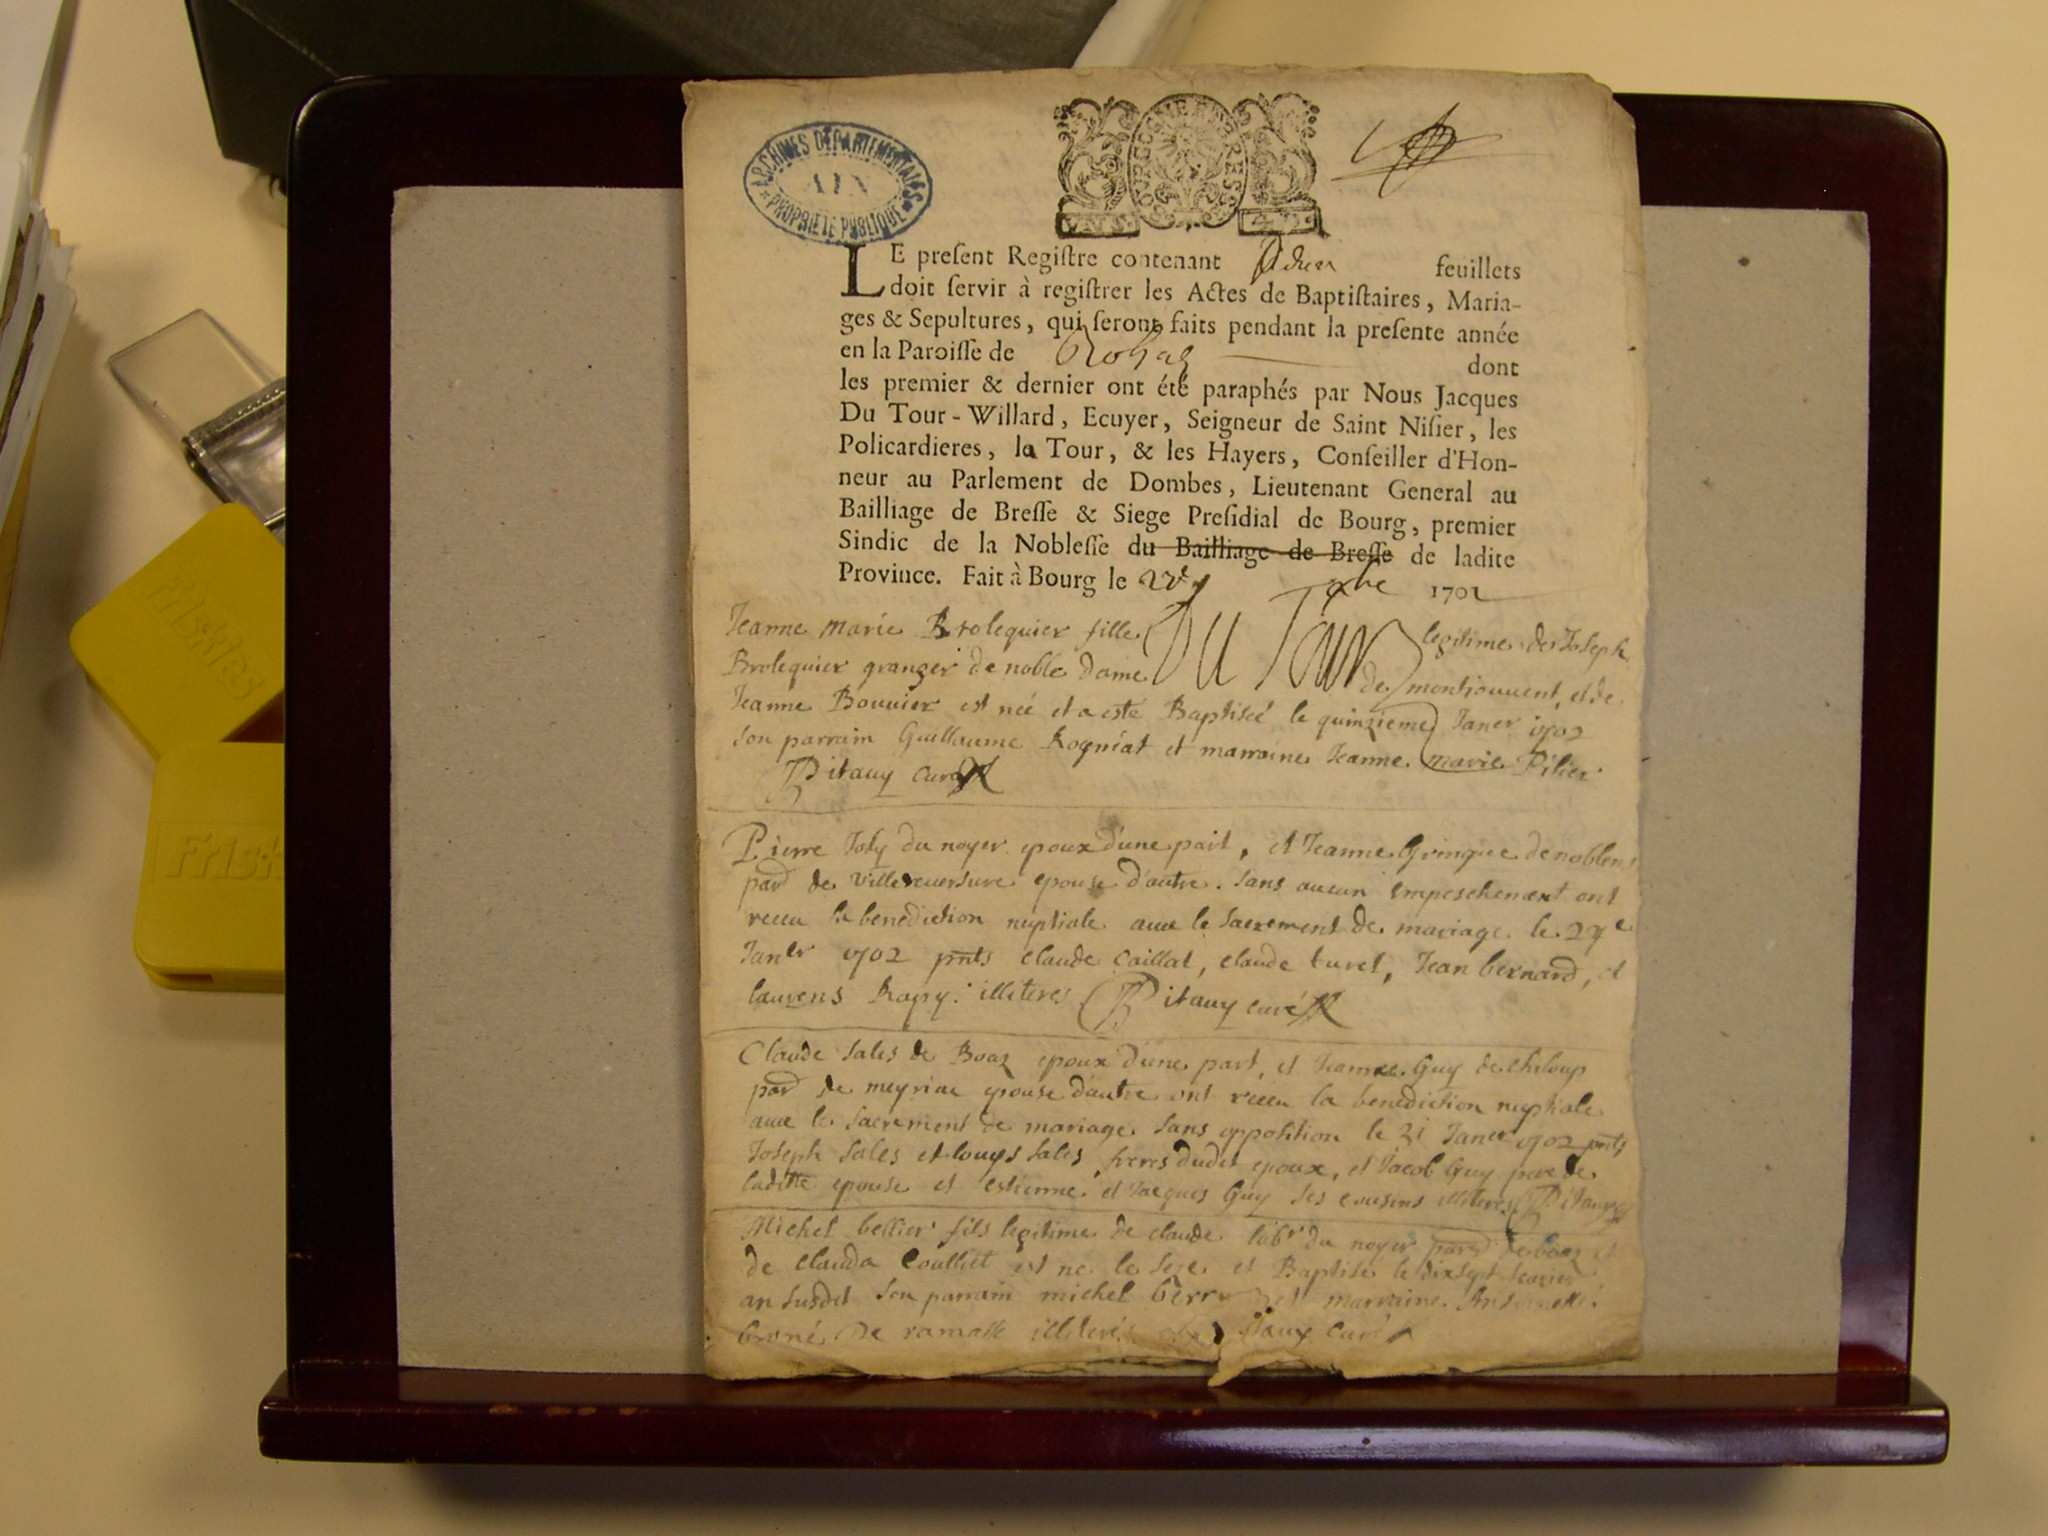 ARCHIVES DEPARTEMENTALES
AIN
PROPRIETE PUBLIQUE
LE preſent Regiſtre contenant feuillets
doit ſervir à regiſtrer les Actes de Baptiſtaires, Maria-
ges & Sepultures, qui ſeront faits pendant la preſente année
en la Paroiſſe de dont
les premier & dernier ont été paraphés par Nous Jacques
Du Tour-Willard, Ecuyer, Seigneur de Saint Niſier, les
Policardieres, la Tour, & les Hayers, Conſeiller d'Hon-
neur au Parlement de Dombes, Lieutenant General au
Bailliage de Breſſe & Siege Preſidial de Bourg, premier
Sindic de la Nobleſſe du Bailliage de Breſſe de ladite
Province. Fait à Bourg le xbre 1701
Du Tour
Jeanne marie Brolequier fille legitime de Joseph
Brolequier granger de noble Dame de montjouvent, et de
Jeanne Bouvier est née et a esté Baptisée le quinzieme Janer 1702
son parrain Guillaume Rogniat et marraine Jeanne marie Pilier
Pitauy curé
Pierre Joly du noyer epoux d'une part, et Jeanne Gringue de noblens
par de Villereversure epouse d'autre. sans aucun empeschement ont
receu la benediction nuptiale avec le sacrement de mariage le 27e
Janer 1702 pnts claude Caillat, claude turel, Jean bernard, et
laurens Rapy. illiteres Pitauy curé
Claude Sales de Boaz epoux d'une part, et Jeanne Guy de chiloup
par de meyriac epouse d'autre ont receu la benediction nuptiale
avec le sacrement de mariage sans opposition le 31 Janer 1702 pnts
Joseph Sales et louys sales freres dudit epoux, et Jacob Guy pere de
laditte epouse et estienne et Jacques Guy ses cousins illiteres Pitauy
Michel bellier fils legitime de claude labr du noyer par de boaz et
de clauda Coulliet est ne le seze et Baptise le dixsept
an susdit son parrain michel et marraine Antoinette
broné de ramasse illiterés Pitauy Curé
Friskies
Frisk